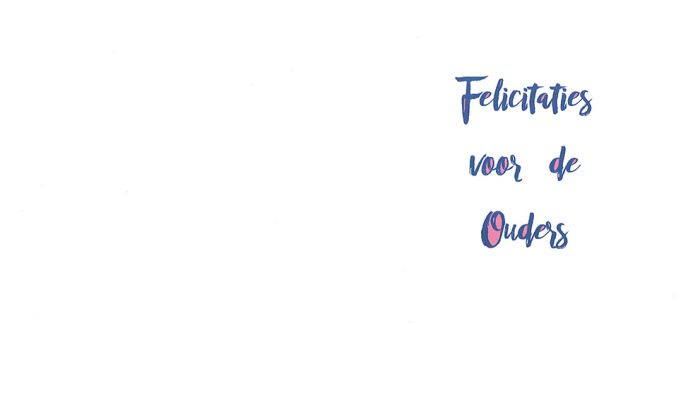 Felicitaties
voor de
Ouders